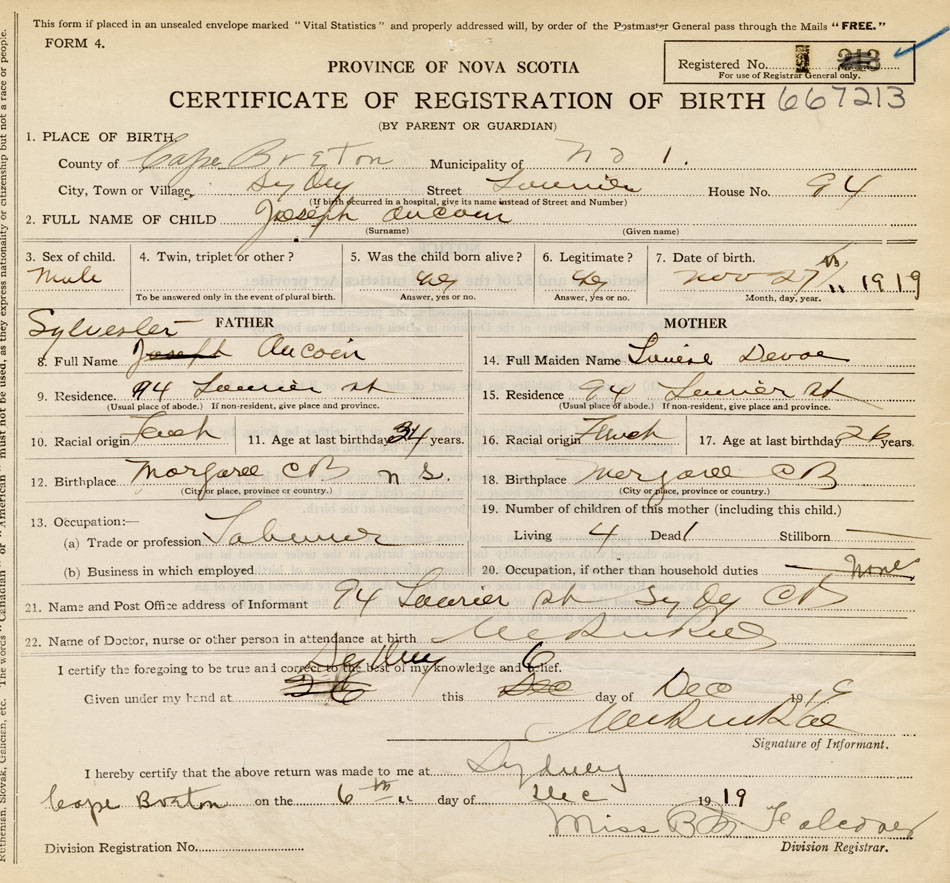 This form if placed in an unsealed envelope marked "Vital Statistics" and properly addressed will, by order of the Postmaster General pass through the Mails "FREE."
FORM 4.
Registered No. 213
For use of Registrar General only.
PROVINCE OF NOVA SCOTIA
CERTIFICATE OF REGISTRATION OF BIRTH 667213
(BY PARENT OR GUARDIAN)
1. PLACE OF BIRTH
County of Cape Breton Municipality of No 1.
City, Town or Village Sydney Street Laurier House No. 94
(If birth occurred in a hospital, give its name instead of Street and Number)
2. FULL NAME OF CHILD Joseph Aucoin
(Surname) (Given name)
3. Sex of child. 4. Twin, triplet or other? 5. Was the child born alive? 6. Legitimate? 7. Date of birth.
Male yes yes Nov 27th 1919
To be answered only in the event of plural birth. Answer, yes or no. Answer, yes or no. Month, day, year.
FATHER MOTHER
Sylvester
8. Full Name Joseph Aucoin 14. Full Maiden Name Louise Devoe
9. Residence. 94 Laurier st 15. Residence 94 Laurier st
(Usual place of abode.) If non-resident, give place and province. (Usual place of abode.) If non-resident, give place and province.
10. Racial origin French 11. Age at last birthday 34 years. 16. Racial origin French 17. Age at last birthday 26 years.
12. Birthplace Margaree CB N S. 18. Birthplace Margaree CB
(City or place, province or country.) (City or place, province or country.)
13. Occupation:— 19. Number of children of this mother (including this child.)
(a) Trade or profession Labourer Living 4 Dead 1 Stillborn —
(b) Business in which employed 20. Occupation, if other than household duties None
21. Name and Post Office address of Informant 94 Laurier st Sydney CB
22. Name of Doctor, nurse or other person in attendance at birth
I certify the foregoing to be true and correct to the best of my knowledge and belief.
Given under my hand at Sydney this 6 day of Dec 1919
Signature of Informant.
I hereby certify that the above return was made to me at Sydney
Cape Breton on the 6th day of Dec 1919
Miss B
Division Registration No. Division Registrar.
Ruthenian, Slovak, Galician, etc. The words "Canadian" or "American" must not be used, as they express nationality or citizenship but not a race or people.